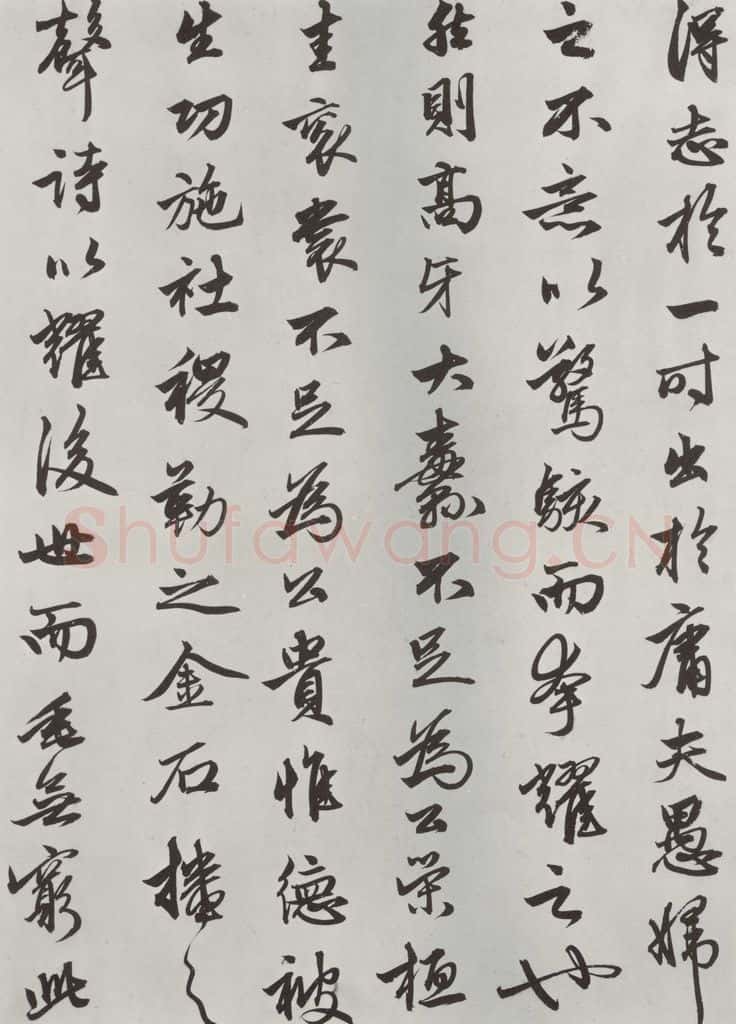 得志於一时出於庸夫愚婦
之不意以驚駭而夸耀之也
然則高牙大纛不足為公榮桓
圭袞裳不足為公貴惟德被
生功施社稷勒之金石播之
聲詩以耀後世而垂無窮此
Shufawang.CN